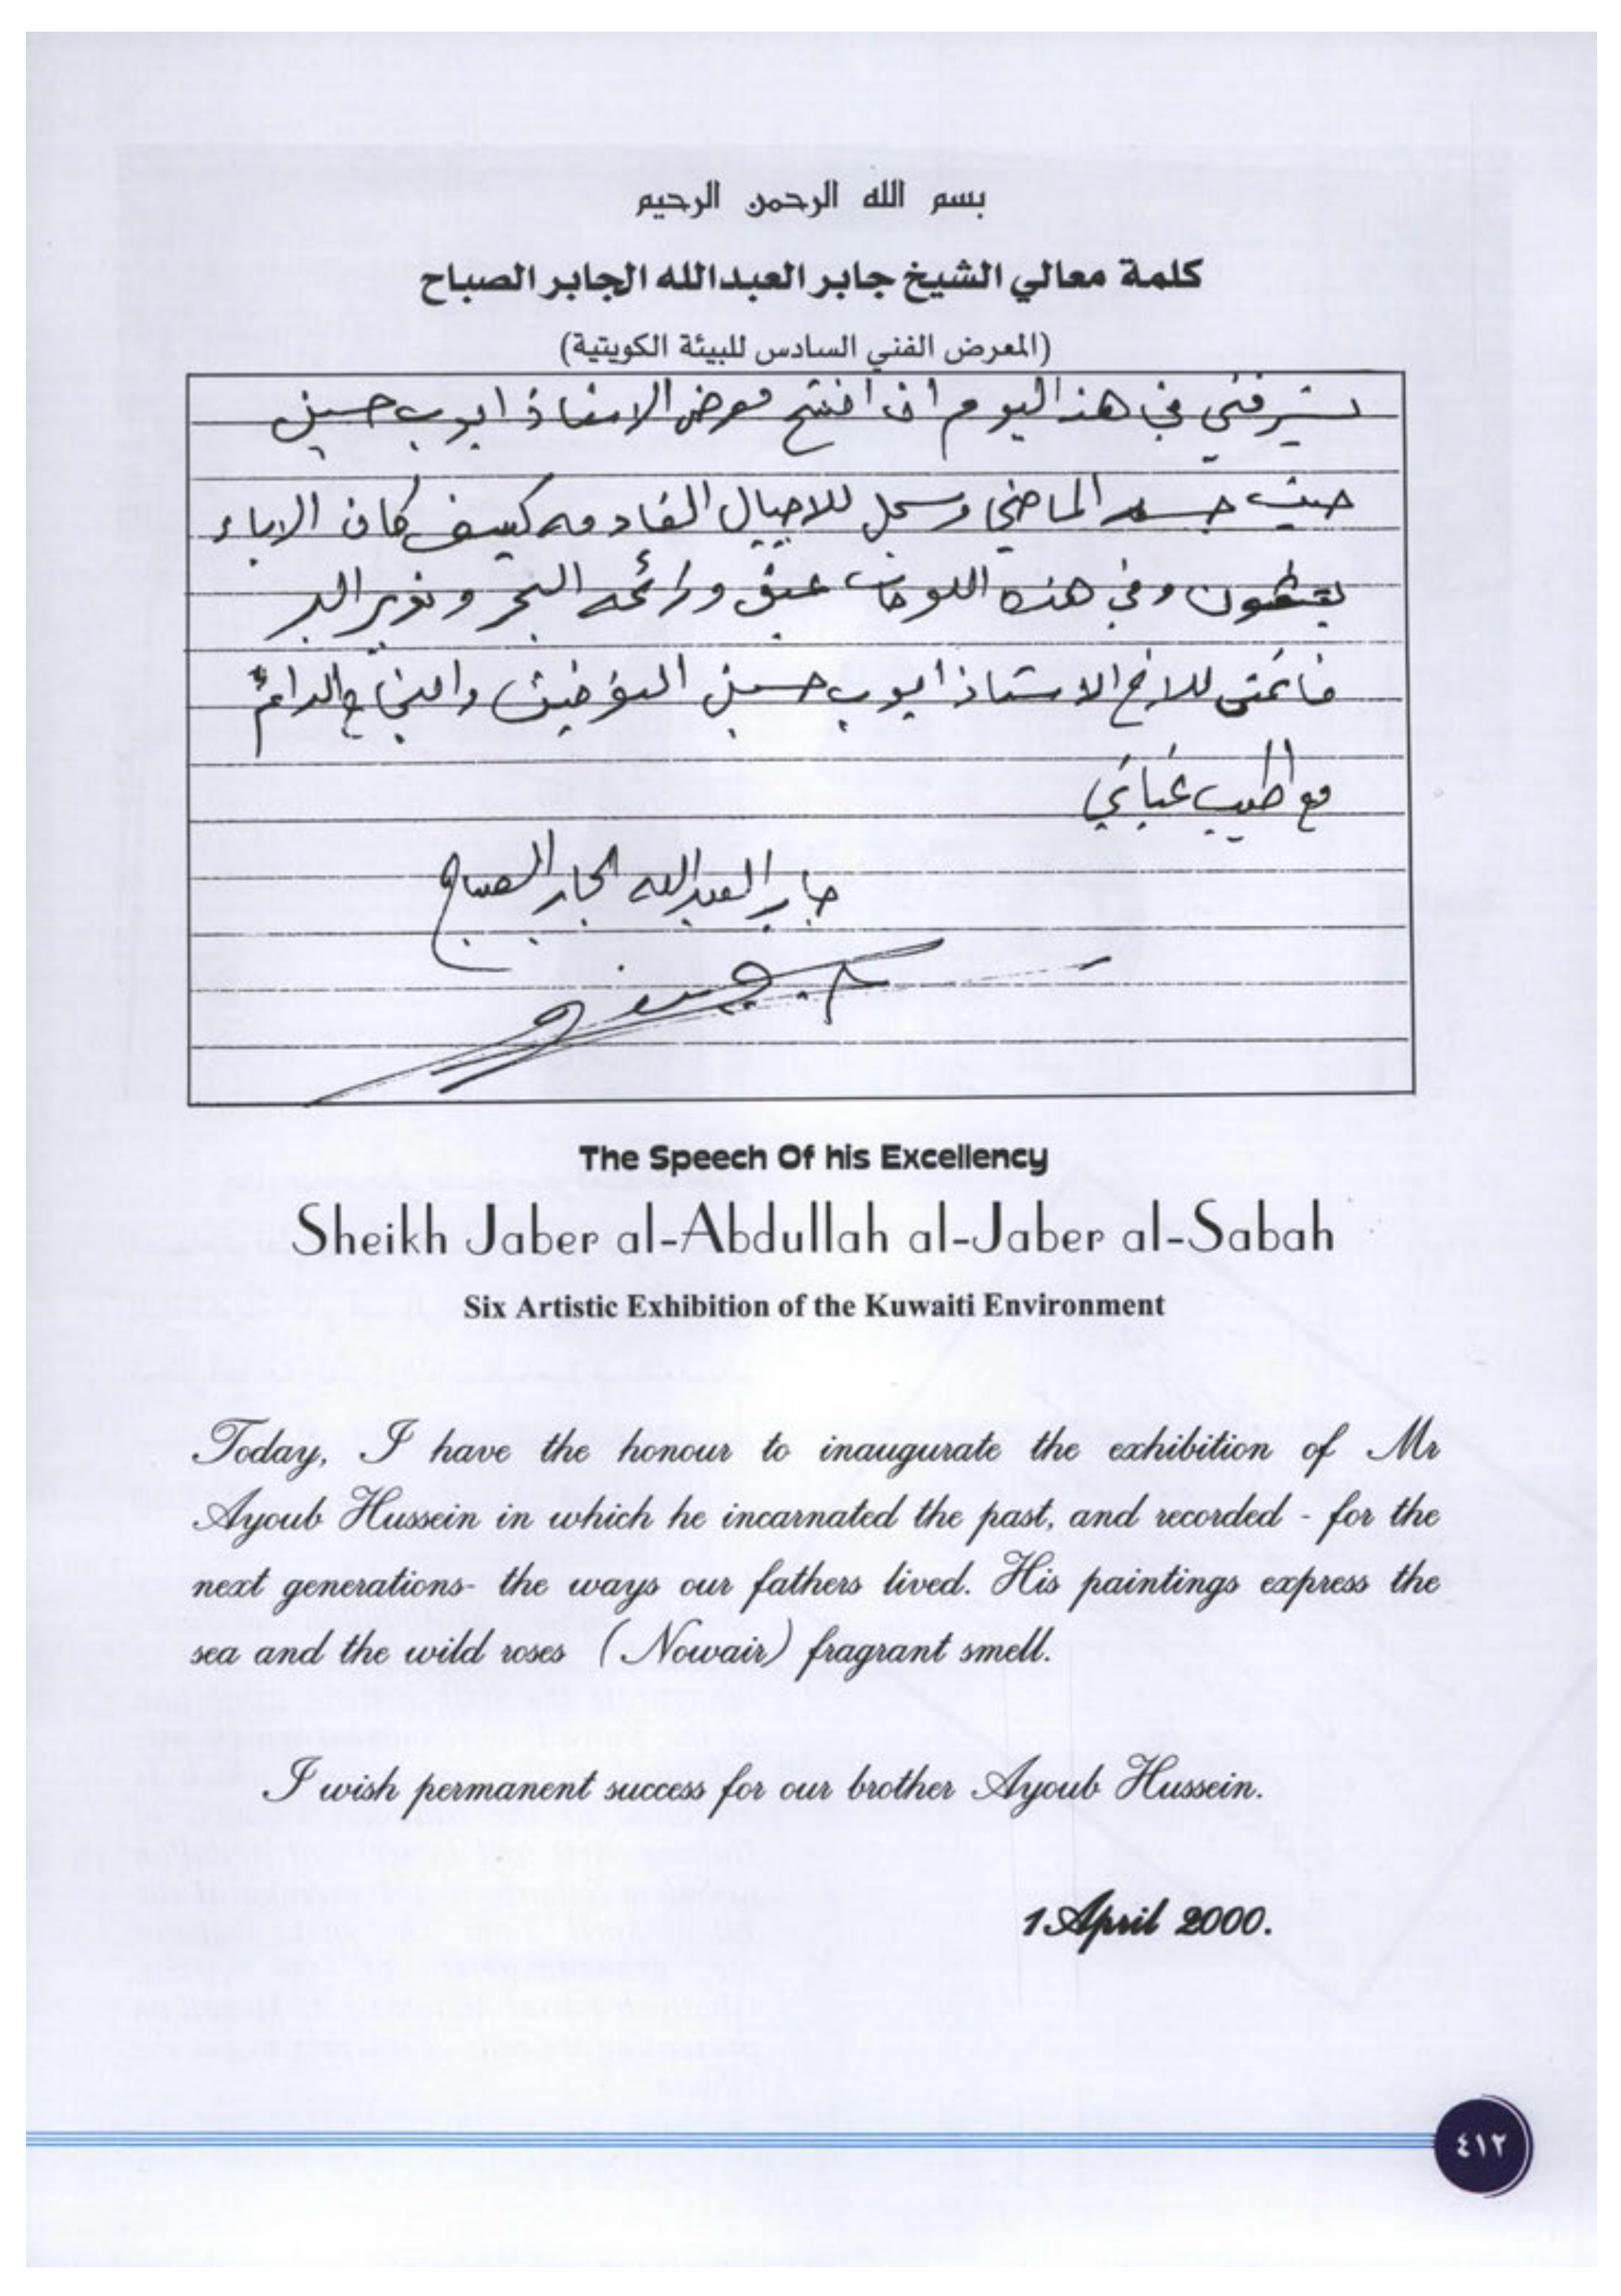 بسم الله الرحمن الرحيم
كلمة معالي الشيخ جابر العبدالله الجابر الصباح
(المعرض الفني السادس للبيئة الكويتية)
يشرفني في هذا اليوم ان افتتح معرض الاستاذ ايوب حسين
حيث جسد الماضي وسجل للاجيال القادمه كيف كان الاباء
وفي هذه اللوحات عبق ورائحه البحر ونوير البر
فاتمنى للاخ الاستاذ ايوب حسين التوفيق والنجاح الدائم
مع اطيب تحياتي
جابر العبدالله الجابر الصباح
The Speech Of his Excellency
Sheikh Jaber al-Abdullah al-Jaber al-Sabah
Six Artistic Exhibition of the Kuwaiti Environment
Today, I have the honour to inaugurate the exhibition of Mr
Ayoub Hussein in which he incarnated the past, and recorded - for the
next generations- the ways our fathers lived. His paintings express the
sea and the wild roses (Nowair) fragrant smell.
I wish permanent success for our brother Ayoub Hussein.
1 April 2000.
٤١٢